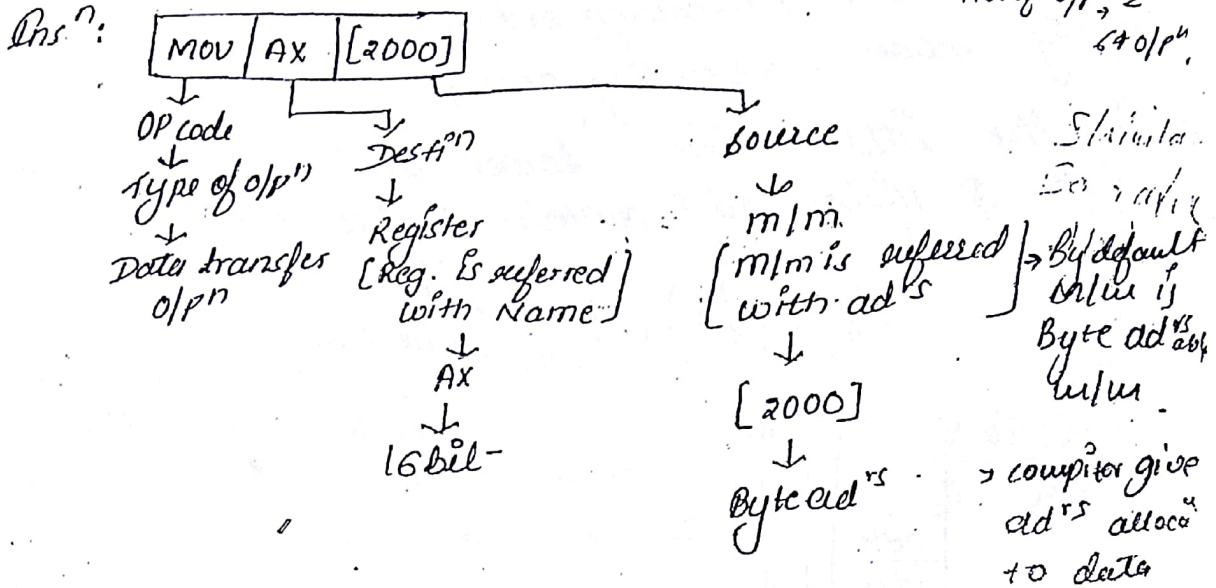 Insⁿ:
MOV AX [2000]
OP code
Type of o/pⁿ
Data transfer
o/pⁿ
Destiⁿ
Register
[Reg. is referred
with Name]
AX
16 bit
Source
m/m
[m/m is referred
with adʳˢ]
[2000]
Byte adʳˢ
→ By default
m/m is
Byte adʳˢ
m/m
→ compiler give
adʳˢ
to data